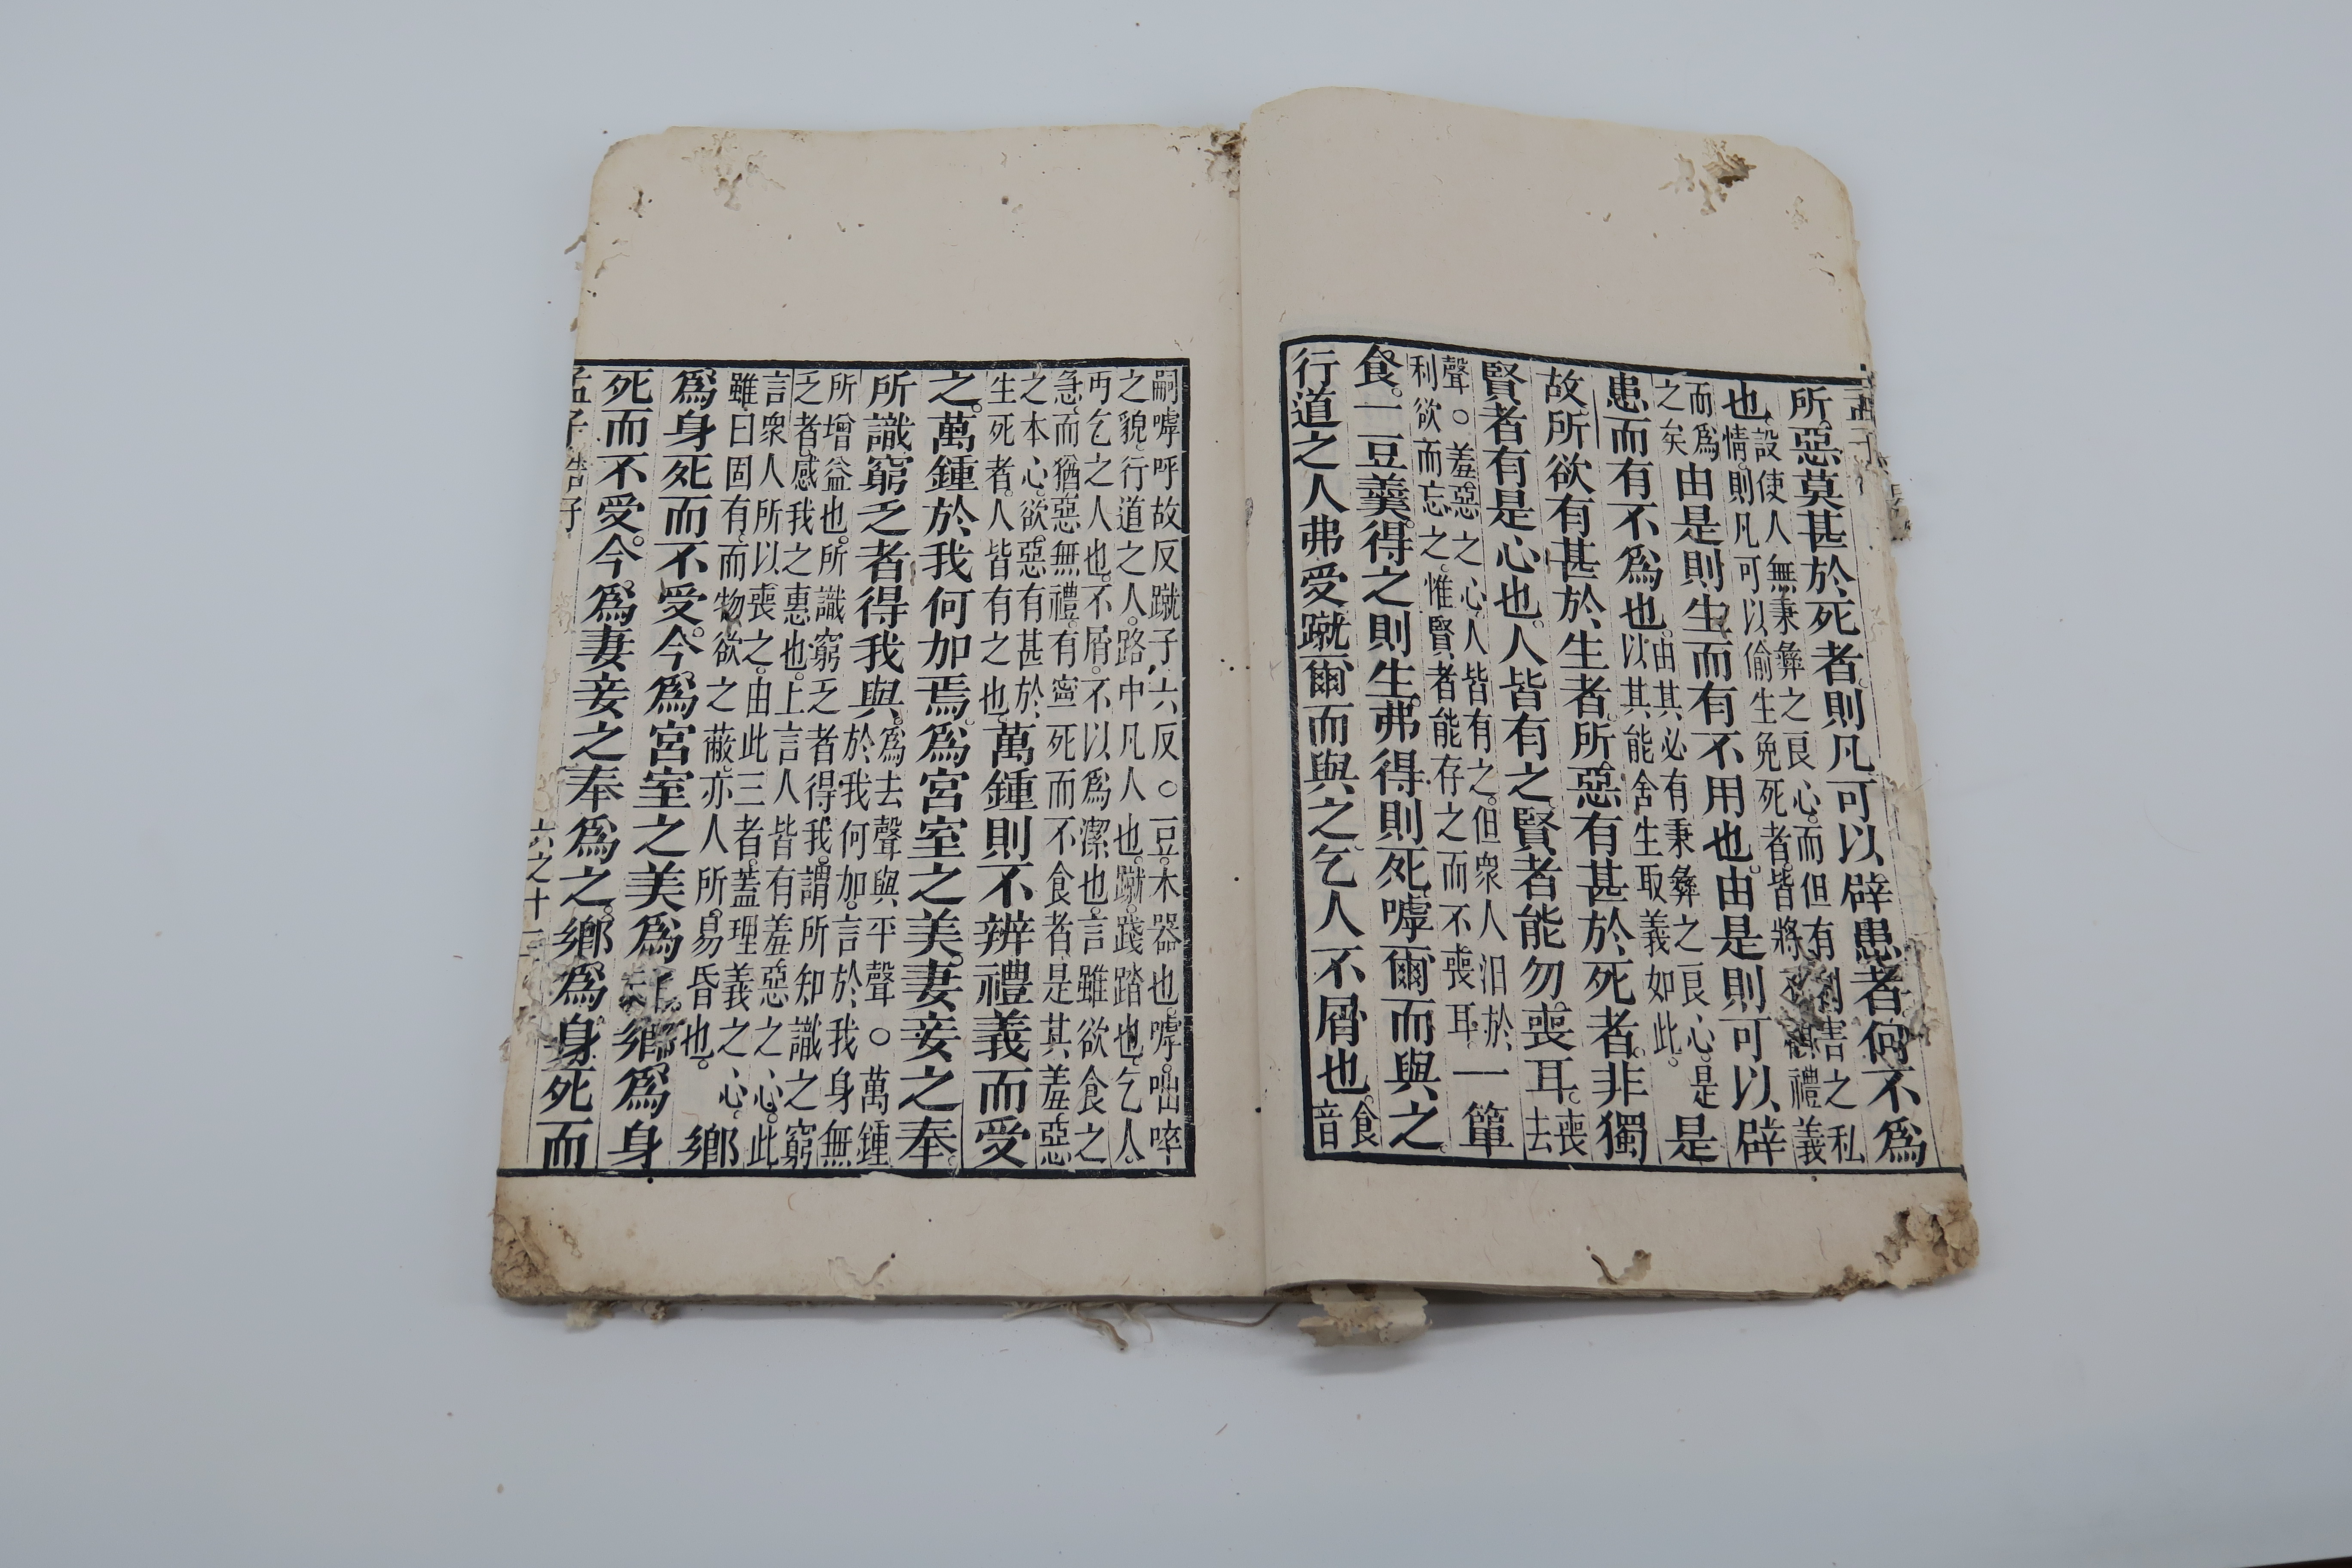 所惡莫甚於死者則凡可以辟患者何不爲
也設使人無秉彝之良心而但有利害之私
情則凡可以偷生免死者皆將不顧禮義
而爲
之矣由是則生而有不用也由是則可以辟
患而有不爲也由其必有秉彝之良心是
以其能舍生取義如此是
故所欲有甚於生者所惡有甚於死者非獨
賢者有是心也人皆有之賢者能勿喪耳喪
去
聲○羞惡之心人皆有之但衆人汨於
利欲而忘之惟賢者能存之而不喪耳一簞
食一豆羹得之則生弗得則死嘑爾而與之
行道之人弗受蹴爾而與之乞人不屑也食
音
嗣嘑呼故反蹴子六反○豆木器也嘑咄啐
之貌行道之人路中凡人也蹴踐踏也乞人
丐乞之人也不屑不以爲潔也言雖欲食之
急而猶惡無禮有寧死而不食者是其羞惡
之本心欲惡有甚於
生死者人皆有之也萬鍾則不辨禮義而受
之萬鍾於我何加焉爲宮室之美妻妾之奉
所識窮乏者得我與爲去聲與平聲○萬鍾
於我何加言於我身無
所增益也所識窮乏者得我謂所知識之窮
乏者感我之惠也上言人皆有羞惡之心此
言衆人所以喪之由此三者蓋理義之心
雖曰固有而物欲之蔽亦人所易昏也鄉
爲身死而不受今爲宮室之美爲鄉爲身
死而不受今爲妻妾之奉爲之鄉爲身死而
孟子 告子 六之十